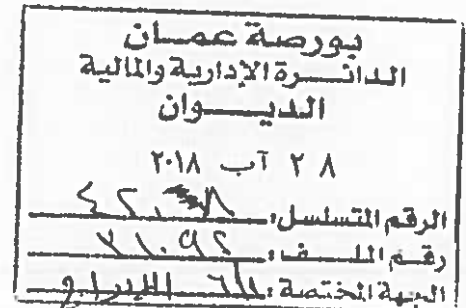 بورصة عمان
الدائرة الإدارية والمالية
الديوان
٢٨ آب ٢٠١٨
الرقم المتسلسل:
رقم الملف: ٣١٠٩٢
الجهة المختصة: